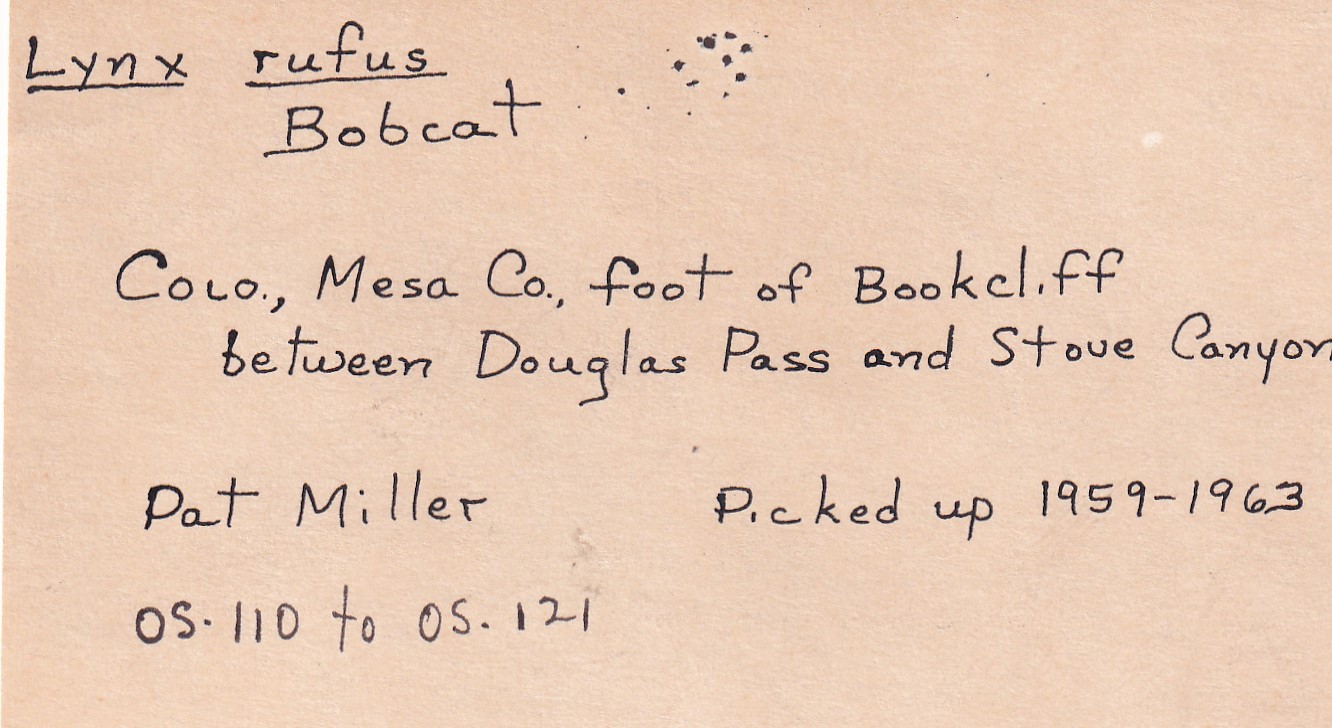 Lynx rufus
Bobcat
Colo., Mesa Co., foot of Bookcliff
between Douglas Pass and Stove Canyon
Pat Miller Picked up 1959-1963
OS. 110 to OS. 121